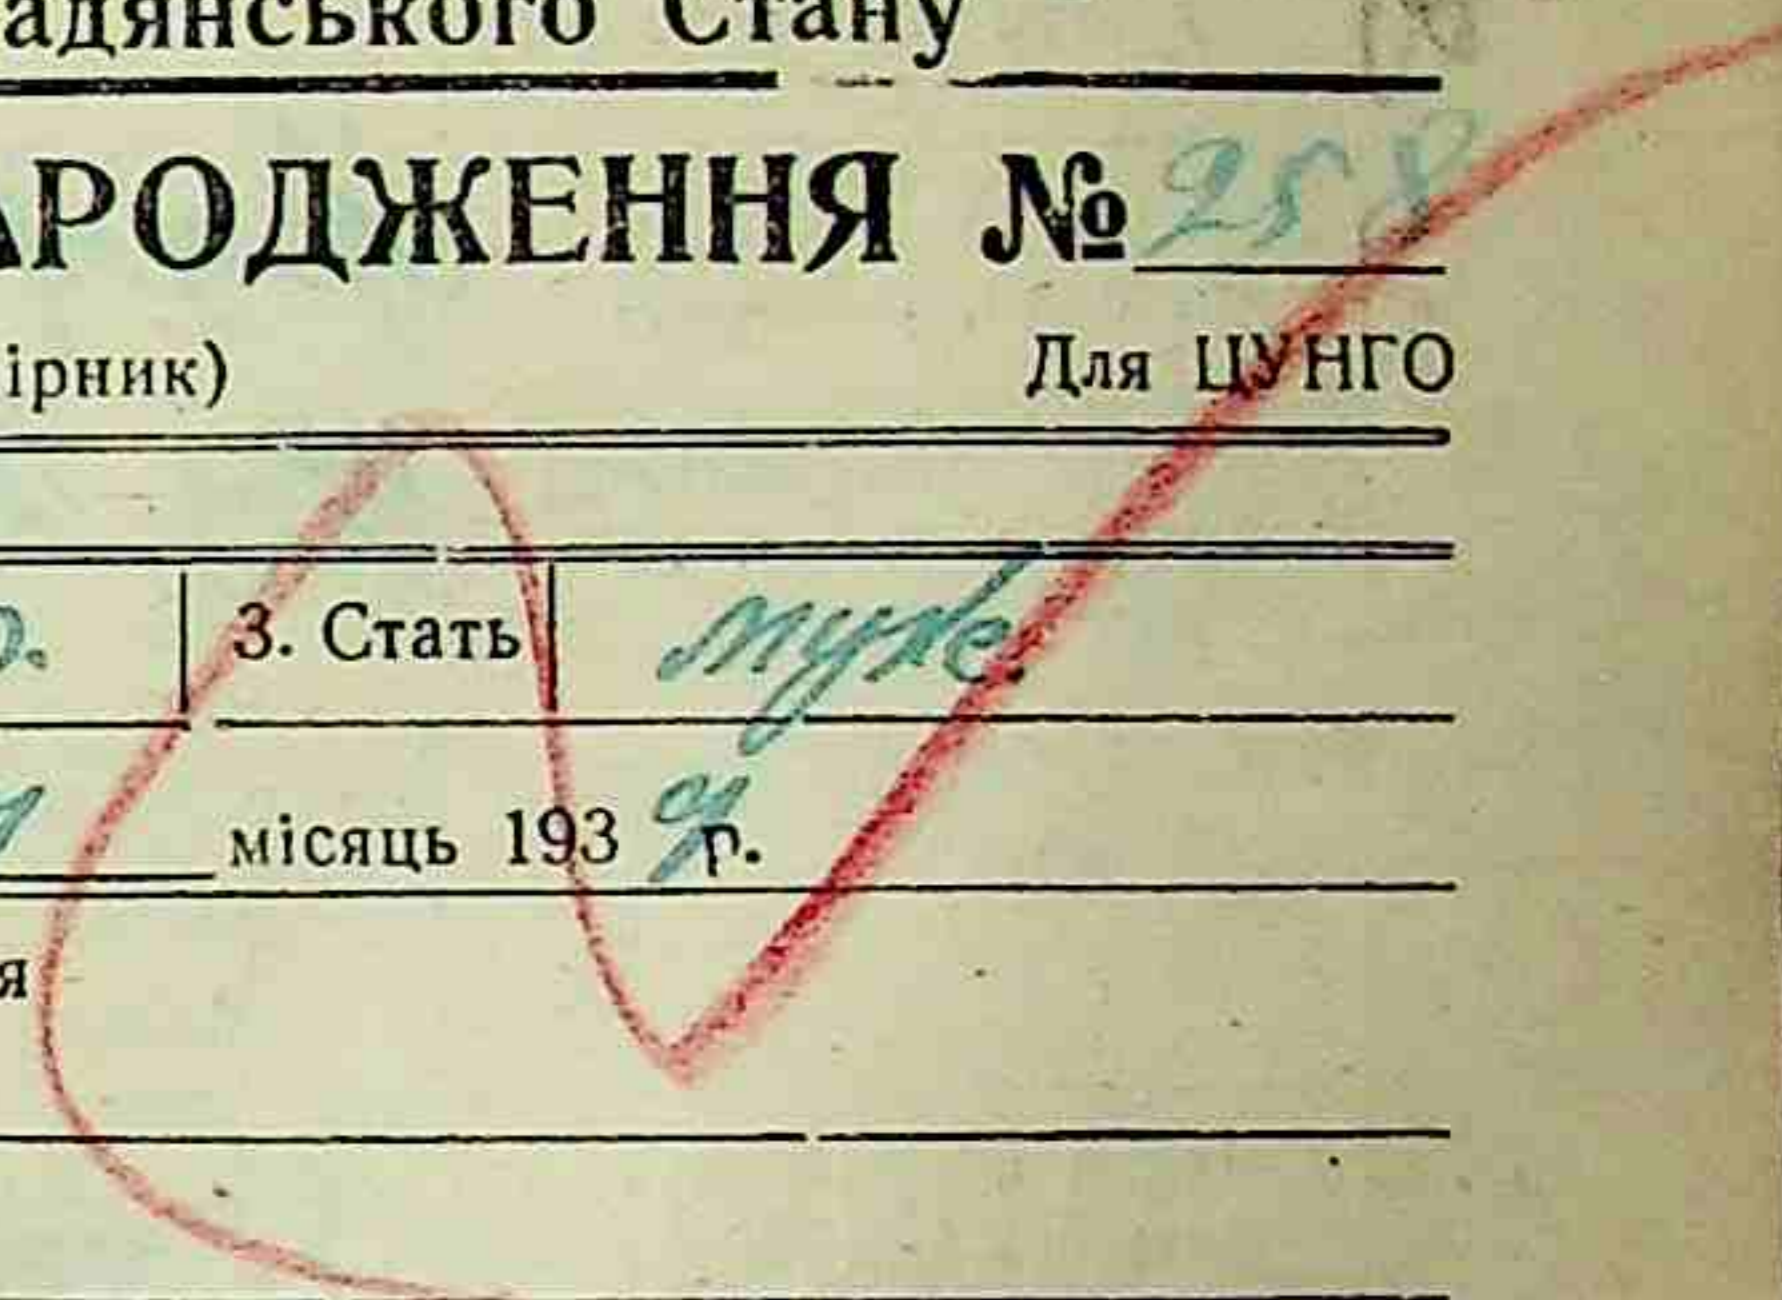 адянського Стану
АРОДЖЕННЯ № 258
ірник) Для ЦУНГО
р. 3. Стать муже.
місяць 193 г.
я